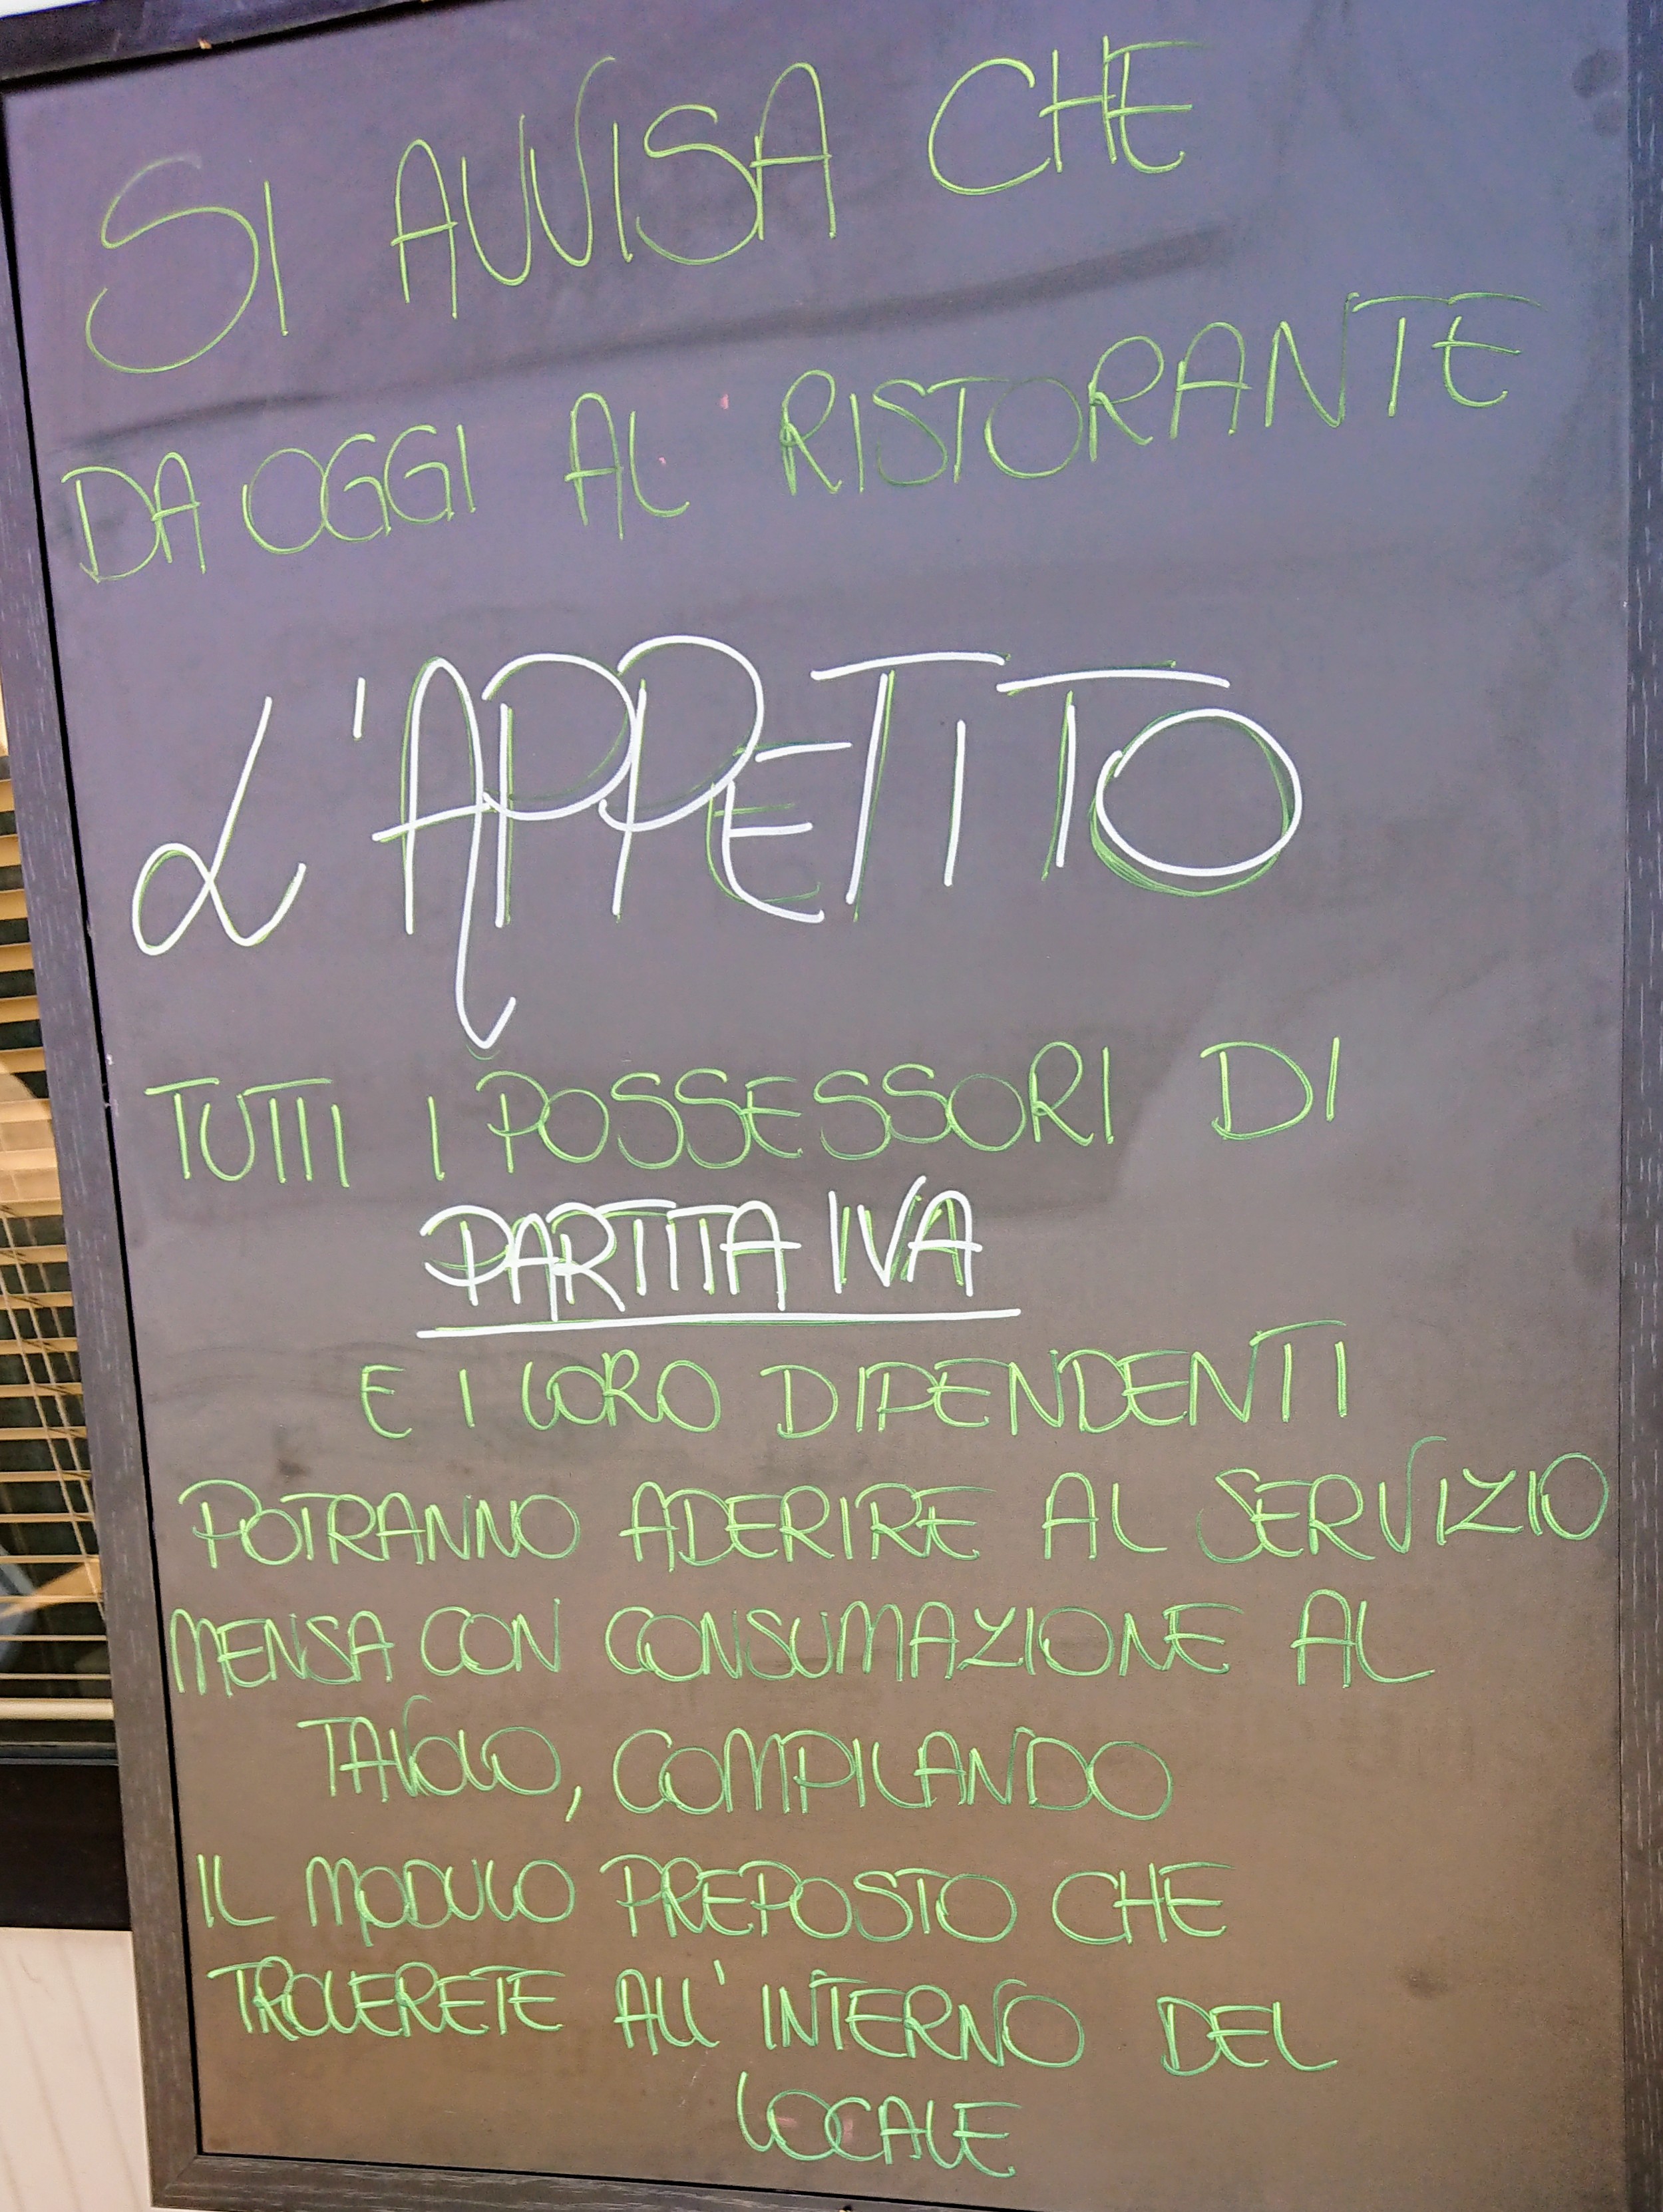 SI AVVISA CHE
DA OGGI AL RISTORANTE
L'APPETITO
TUTTI I POSSESSORI DI
PARTITA IVA
E I LORO DIPENDENTI
POTRANNO ADERIRE AL SERVIZIO
MENSA CON CONSUMAZIONE AL
TAVOLO, COMPILANDO
IL MODULO PREPOSTO CHE
TROVERETE ALL'INTERNO DEL
LOCALE